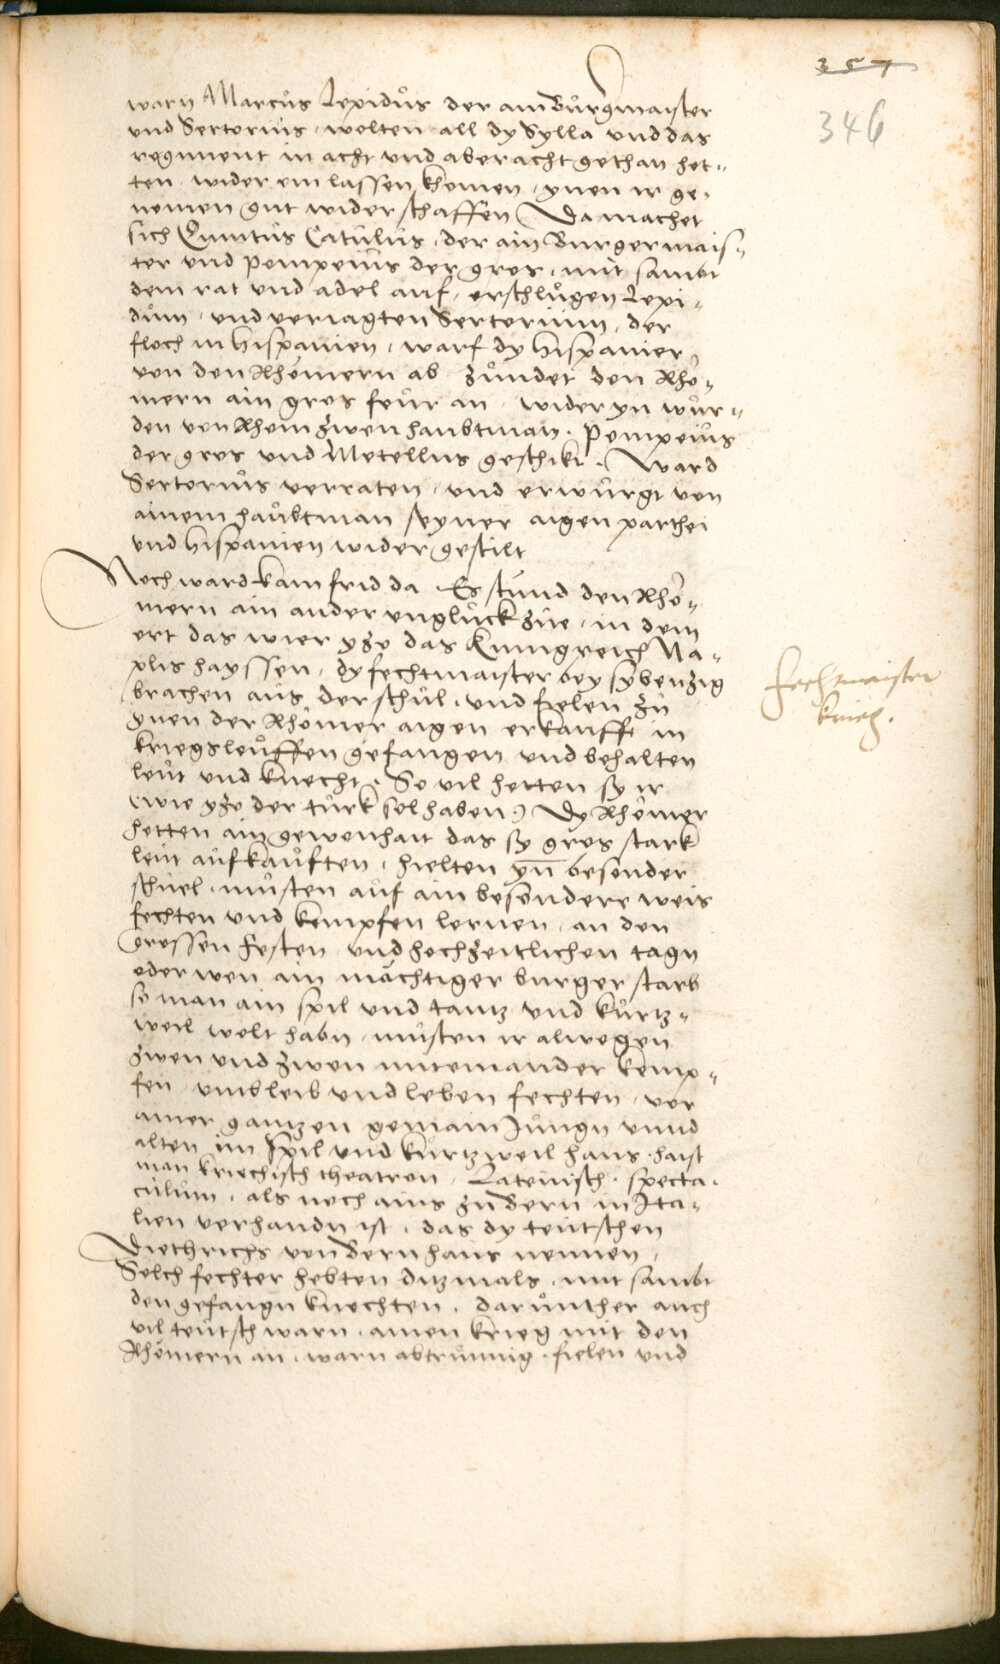 357
346
warn Marcus Lepidus der ain Burgmaister
und Sertorius, wolten all dy Sylla und das
regiment in acht und aber acht gethan het-
ten wider ein lassen khomen, ynen ir ge-
nomen gut wider schaffen Da machet
sich Quintus Catulus, der ain Burgermais-
ter und Pompeius der gros, mit sambt
dem rat und adel auf, erschlůgen Lepi-
dům, und veriagten Sertorium, der
floch in Hispanien, warf dy Hispanier
von den Rhömern ab zůndet den Rhö-
mern ain gros feůr an, wider yn wůr-
den von Rhom zwen haubtman. Pompeiůs
der gros und Metellus geschikt. Ward
Sertoriůs verraten, und erwůrgt von
ainem haůbtman seyner aigen parthei
und Hispanien wider gestilt
Noch ward kain frid da Es stund den Rhö-
mern ain ander unglůck zue, in dem
ort das wier yzo das Kunigreich Na-
plis hayssen, dy fechtmaister bey sybenzig
brachen aus der schůl, und fielen zů
ynen der Rhömer aigen erkaufft in
kriegsleůffen gefangen und behalten
leůt und knecht. So vil hetten sy ir
(wie yzo der türk sol haben) Dy Rhömer
hetten ain gewonhait das sy gros stark
leüt aůfkaůften, hielten yn̄ besonder
schuel, můsten aůf ain besondere weis
fechten und kempfen lernen, an den
grossen festen und hochzeitlichen tagn
oder wen ain mächtiger burger starb
so man ain spil und tantz und kůrtz-
weil wolt habn, můsten ir alwegen
zwen und zwen miteinander kemp-
fen umb leib und leben fechten, vor
ainer gantzen gemain Jůngn unnd
alten im spil und kůrtzweil haus, haist
man kriechisch theatron, Lateinisch. specta-
culum, als noch ains zu Bern in Ita-
lien verhandn ist, das dy teutschen
Diethrichs von Bern haus nennen,
Solch fechter hebten ditzmals, mit sambt
den gefangn knechten, darůnther auch
vil teůtsch warn, ainen krieg mit den
Rhömern an, warn abtrůnnig, fielen und
fechtmaister
krieg.